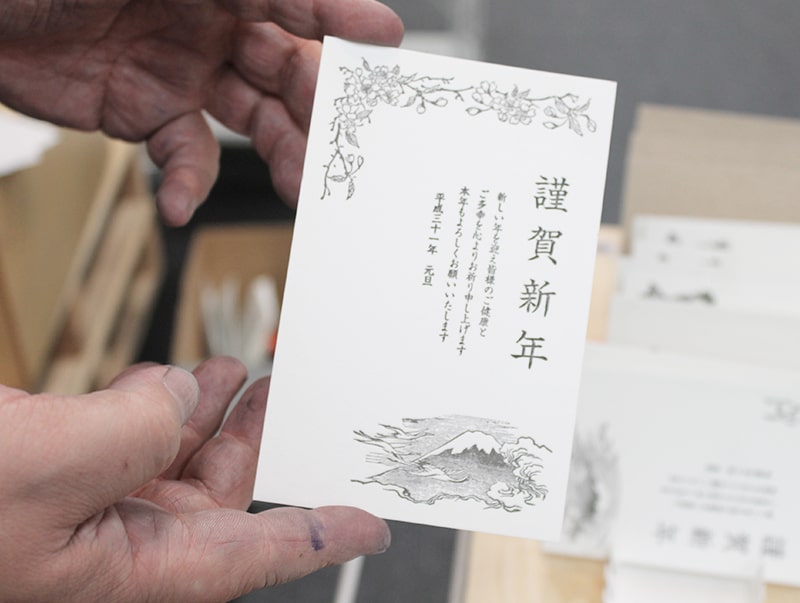 謹賀新年
新しい年を迎え皆様のご健康と
ご多幸を心よりお祈り申し上げます
本年もよろしくお願いいたします
平成三十一年　元旦
謹賀新年